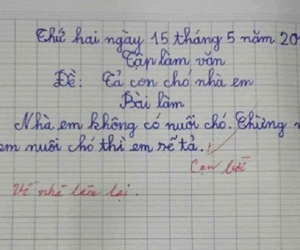 Thứ hai ngày 15 tháng 5 năm 20
Tập làm văn
Đề: Tả con chó nhà em
Bài làm
Nhà em không có nuôi chó. Chừng n
em nuôi chó thì em sẽ tả.!
Con bởi
Về nhà làm lại.